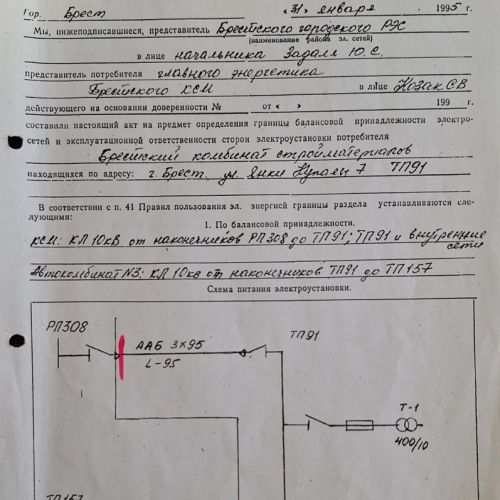 Гор. Брест «31» января 1995 г.
Мы, нижеподписавшиеся, представитель Брестского городского РЭС
(наименование района эл. сетей)
в лице начальника Задаля Ю.С.
представитель потребителя главного энергетика
Брестского КСМ в лице Козак С В
действующего на основании доверенности № от « » 199 г.
составили настоящий акт на предмет определения границы балансовой принадлежности электро-
сетей и эксплуатационной ответственности сторон электроустановки потребителя
Брестский комбинат стройматериалов
находящихся по адресу: г. Брест, ул Янки Купалы 7 ТП91
В соответствии с п. 41 Правил пользования эл. энергией границы раздела устанавливаются сле-
дующими:
1. По балансовой принадлежности.
КСМ: КЛ 10кВ от наконечников РП308 до ТП91; ТП91 и внутренние
сети
Автокомбинат N3: КЛ 10кв от наконечников ТП91 до ТП157
Схема питания электроустановки.
РП308
ААБ 3х95
L-95
ТП91
Т-1
400/10
ТП157